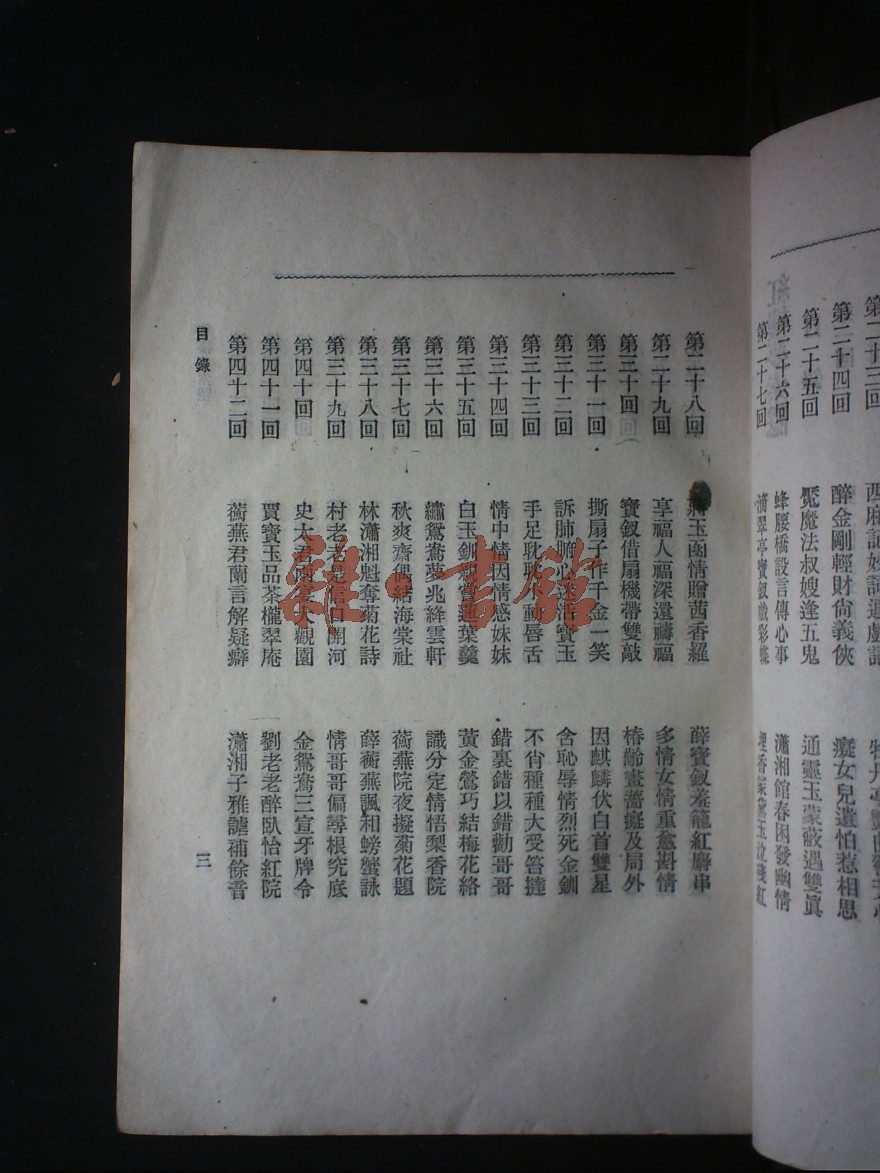 第二十三回
第二十四回 醉金剛輕財尚義俠 癡女兒遺怕惹相思
第二十五回 魘魔法叔嫂逢五鬼 通靈玉蒙蔽遇雙眞
第二十六回 蜂腰橋設言傳心事 瀟湘館春困發幽情
第二十七回 滴翠亭寶釵戲彩蝶 埋香冢黛玉泣殘紅
第二十八回 蔣玉函情贈茜香羅 薛寶釵羞籠紅麝串
第二十九回 享福人福深還禱福 多情女情重愈斟情
第三十回 寶釵借扇機帶雙敲 椿齡畫薔癡及局外
第三十一回 撕扇子作千金一笑 因麒麟伏白首雙星
第三十二回 訴肺腑心迷活寶玉 含恥辱情烈死金釧
第三十三回 手足耽耽小動唇舌 不肖種種大受笞撻
第三十四回 情中情因情感妹妹 錯裏錯以錯勸哥哥
第三十五回 白玉釧親嘗蓮葉羹 黃金鶯巧結梅花絡
第三十六回 繡鴛鴦夢兆絳雲軒 識分定情悟梨香院
第三十七回 秋爽齋偶結海棠社 蘅蕪院夜擬菊花題
第三十八回 林瀟湘魁奪菊花詩 薛蘅蕪諷和螃蟹詠
第三十九回 村老老是信口開河 情哥哥偏尋根究底
第四十回 史太君兩宴大觀園 金鴛鴦三宣牙牌令
第四十一回 賈寶玉品茶櫳翠庵 劉老老醉臥怡紅院
第四十二回 蘅蕪君蘭言解疑癖 瀟湘子雅謔補餘音
目錄 三
雜·書館